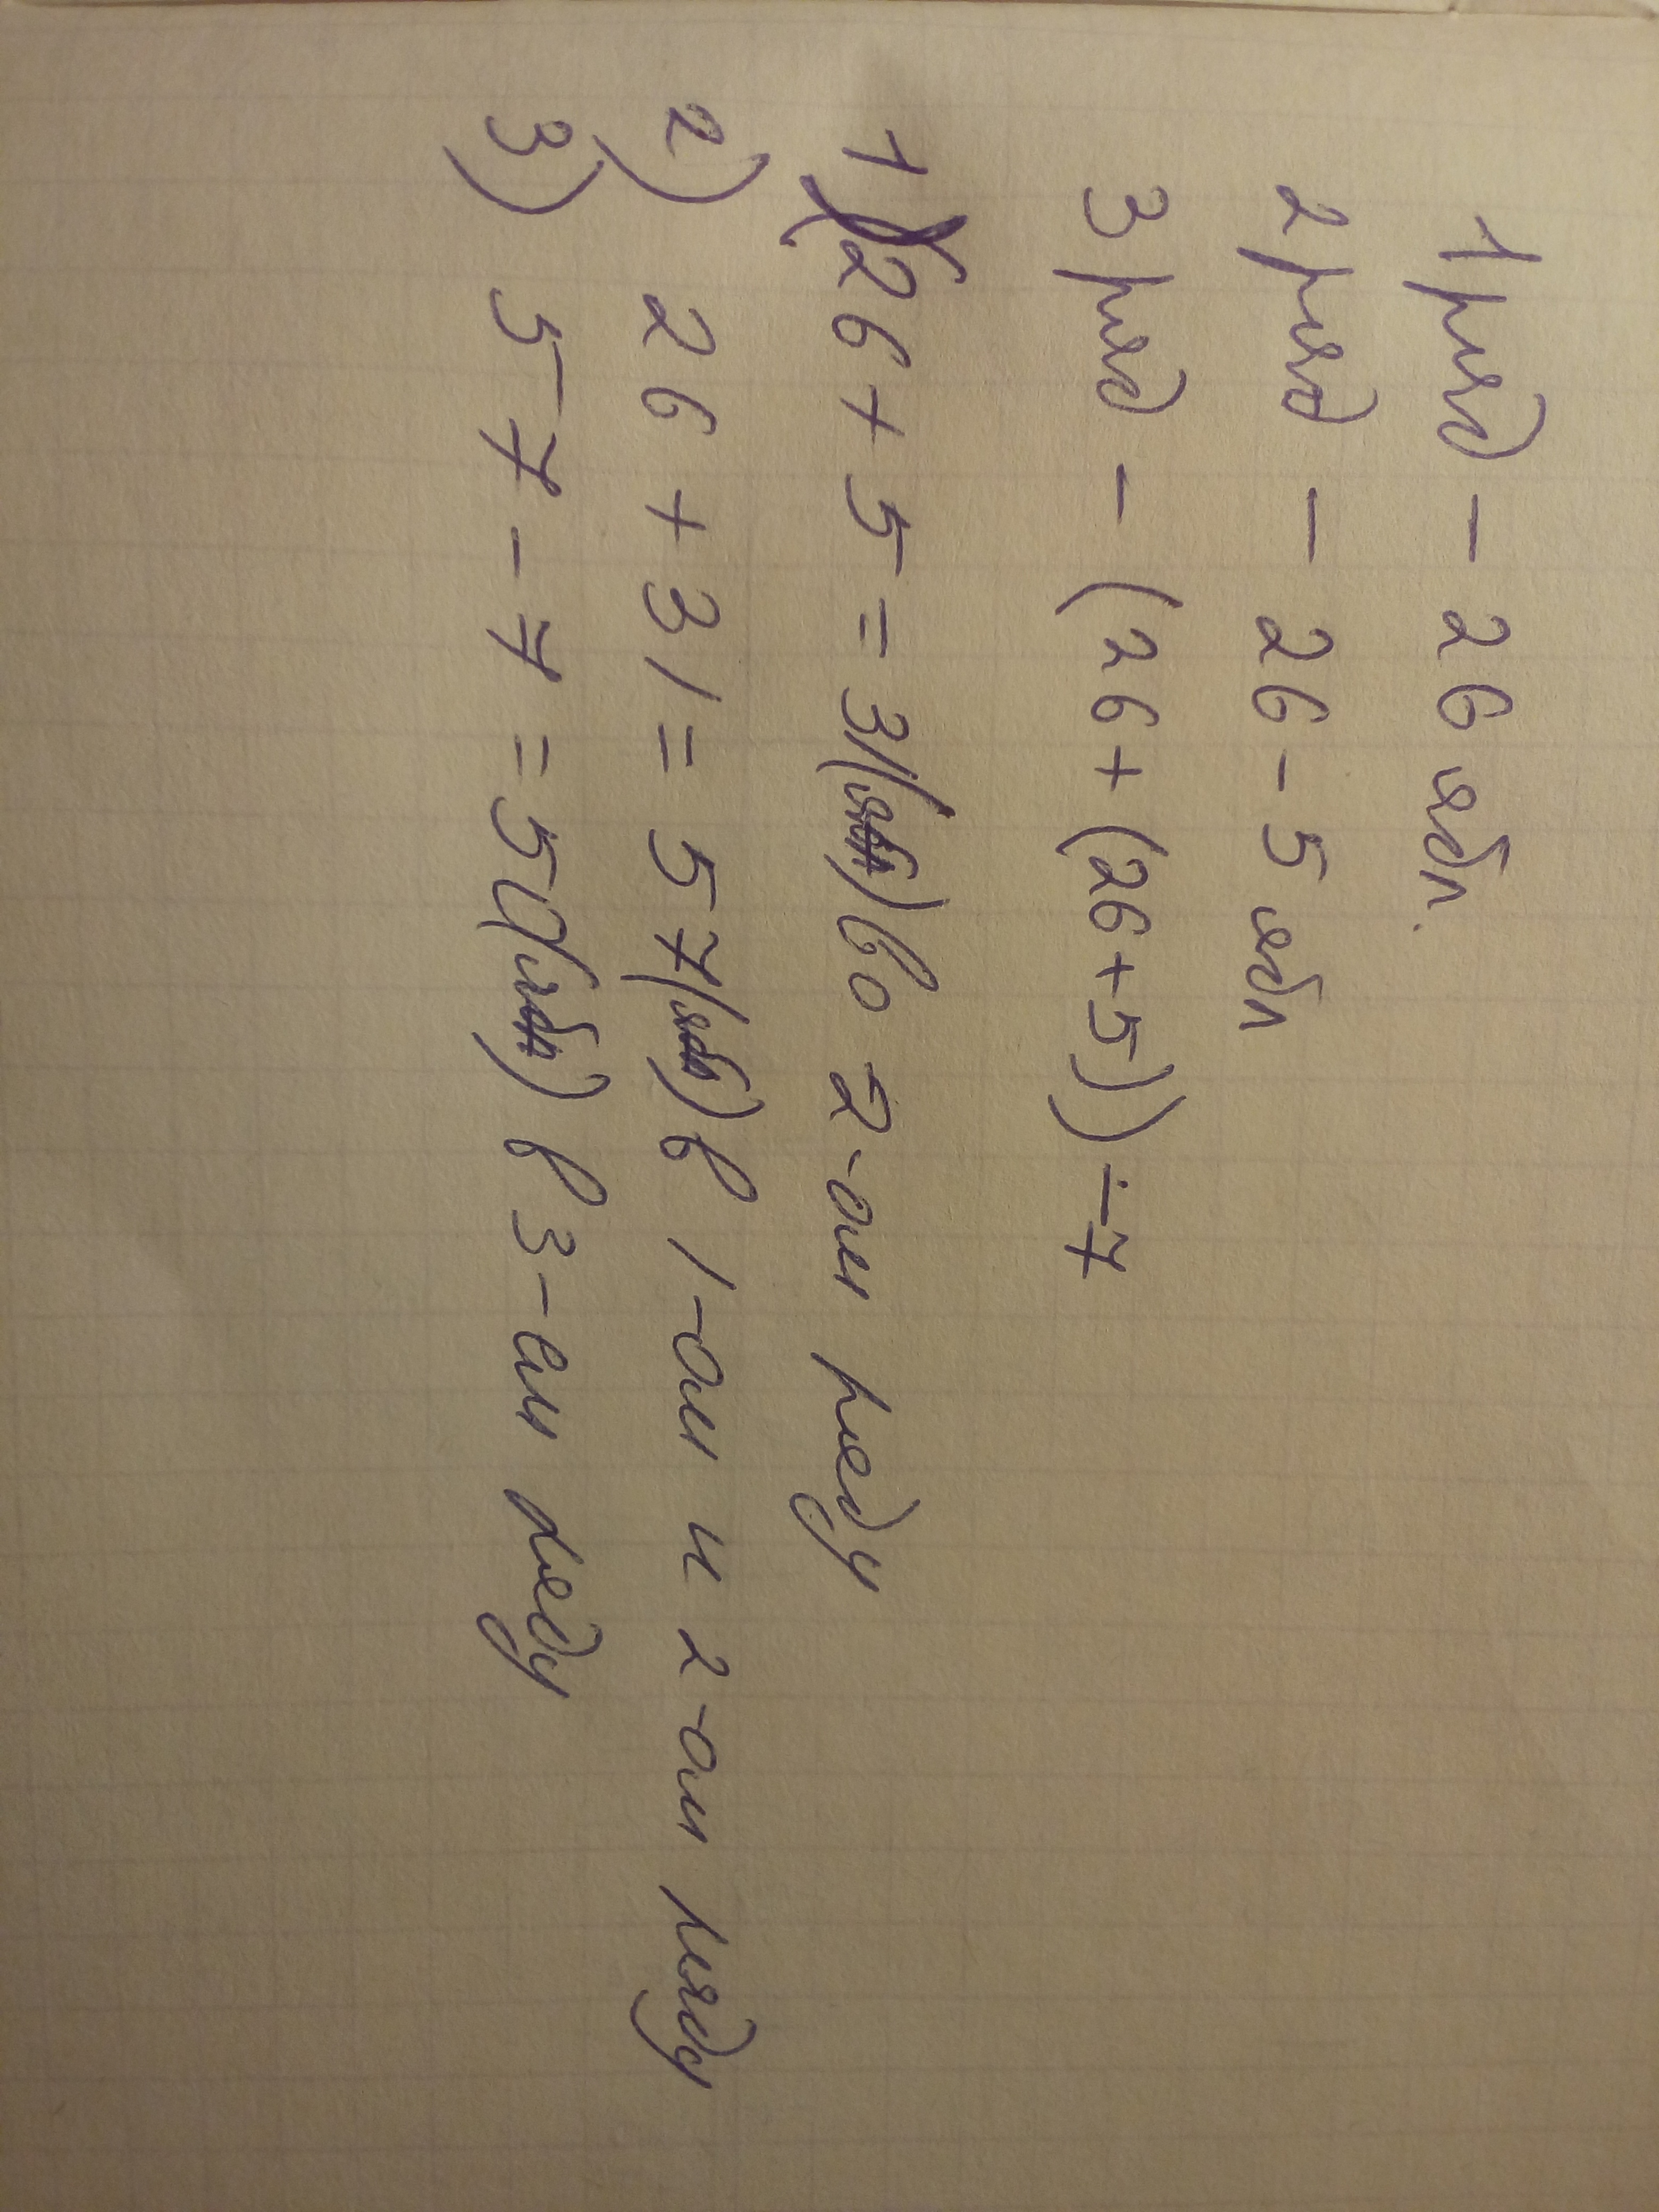 1 ряд - 26 ябл.
2 ряд - 26 - 5 ябл
3 ряд - (26 + (26 + 5)) - 7
1) 26 + 5 = 31 (ябл) во 2-ом ряду
2) 26 + 31 = 57 (ябл) в 1-ом и 2-ом ряду
3) 57 - 7 = 50 (ябл) в 3-ем ряду